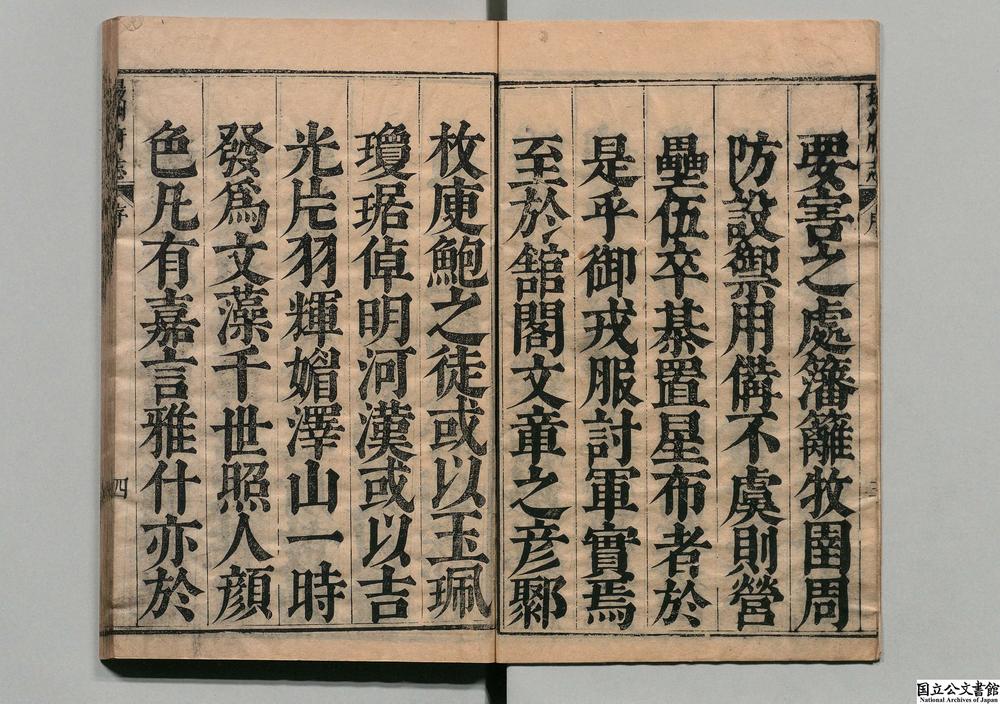 要害之處籓籬牧圉周
防設禦用備不虞則營
壘伍卒棊置星布者於
是乎御戎服討軍實焉
至於舘閣文章之彦鄹
枚庾鮑之徒或以玉珮
瓊琚倬明河漢或以吉
光片羽輝媚澤山一時
發爲文藻千世照人顔
色凡有嘉言雅什亦於
四
国立公文書館
National Archives of Japan